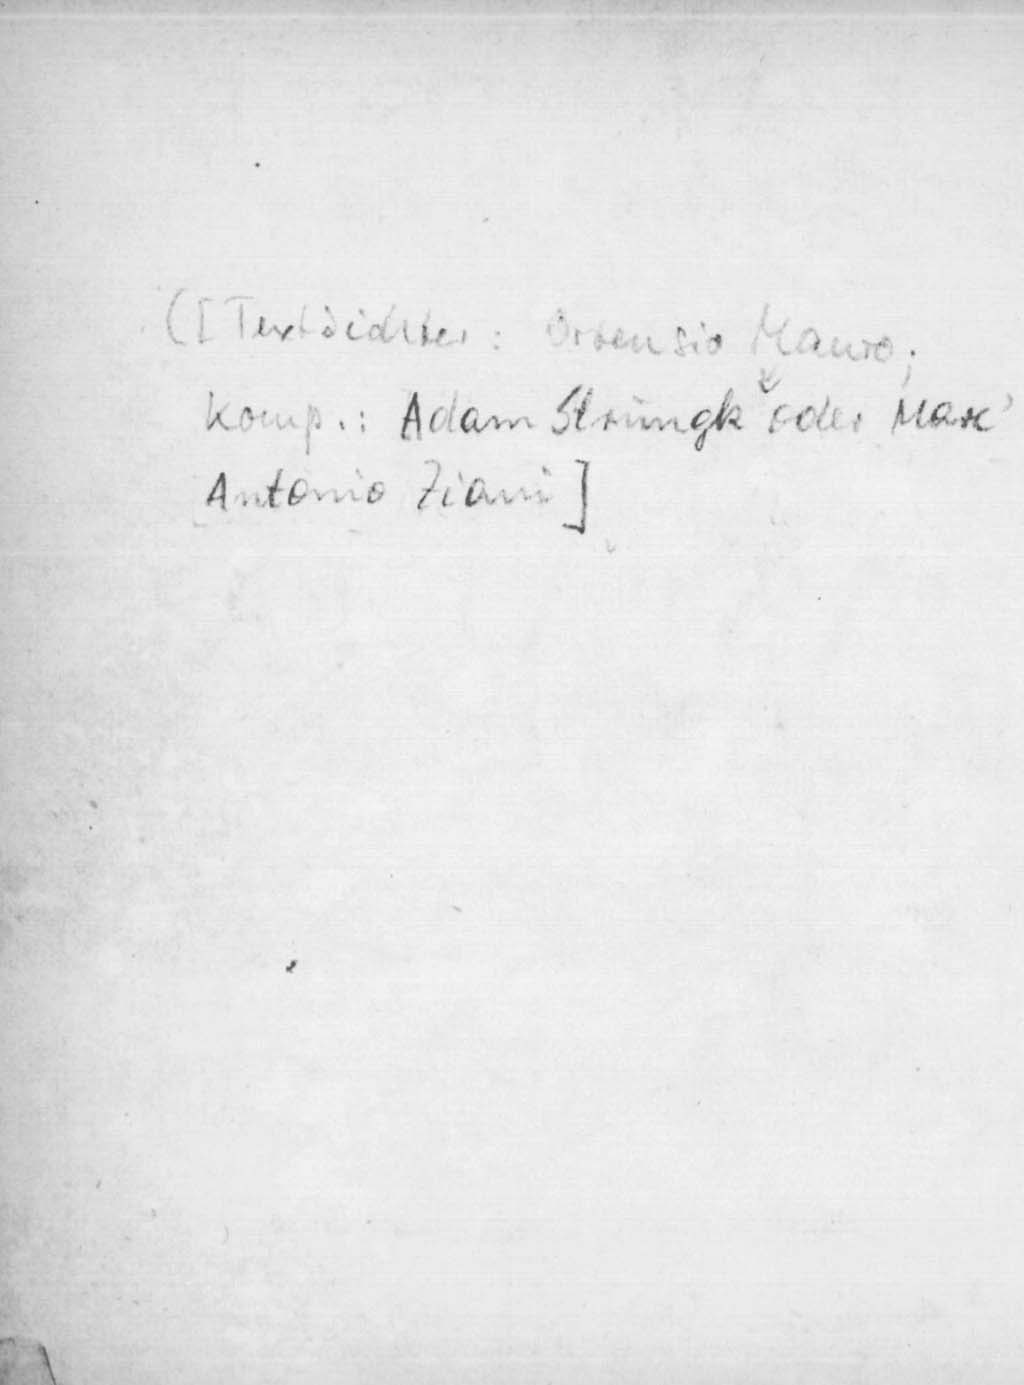 ([Textdichter: Ortensio Mauro;
Komp.: Adam Strungk oder Marc'
Antonio Ziani]